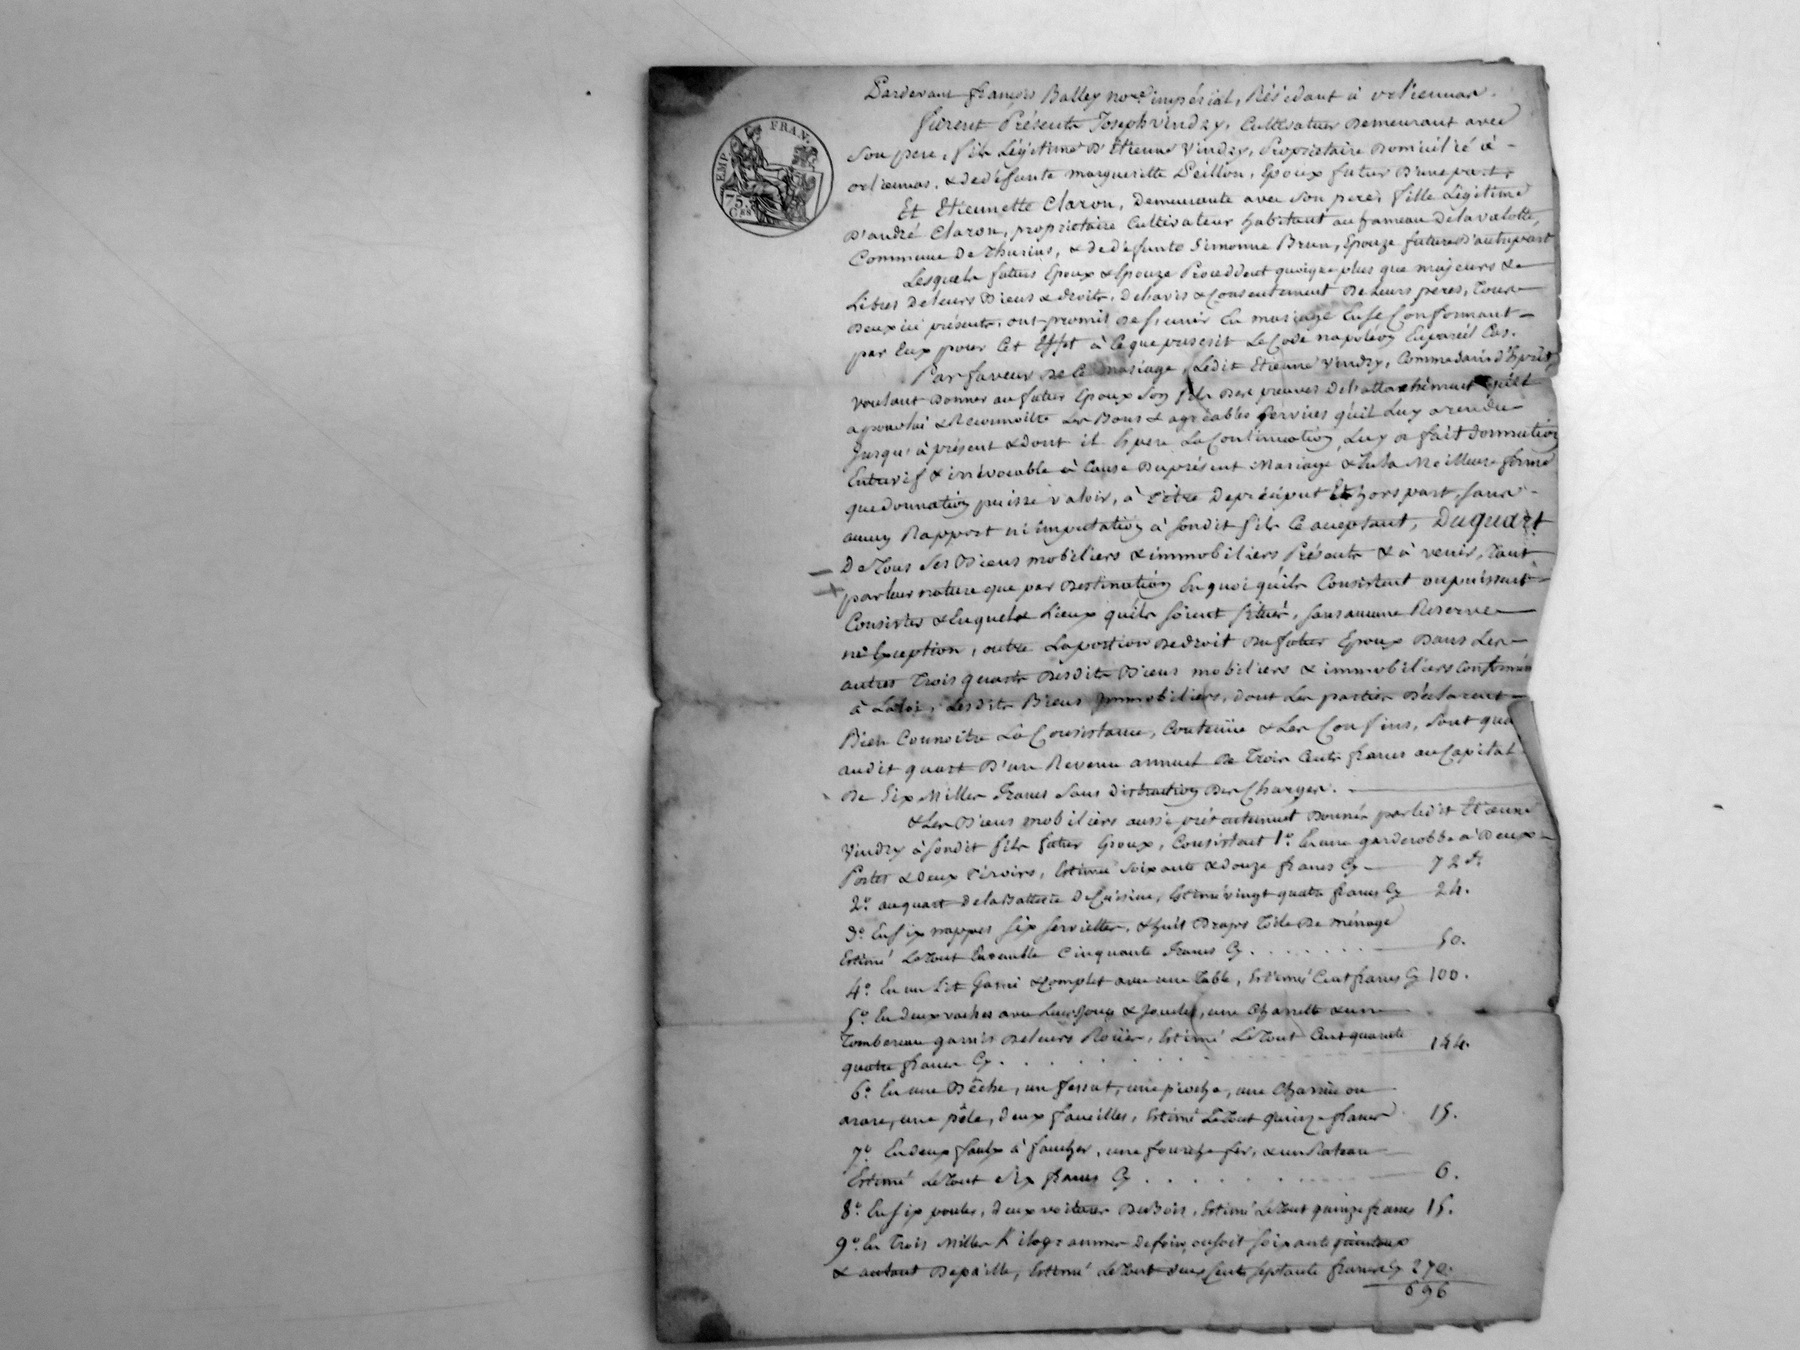 EMP. FRAN.
75. Cen
Pardevant françois Balley no.re impérial, Résidant à vaRennas.
furent Présents Joseph vindry, Cultivateur Demeurant avec
Son pere, fils Légitime D'Etienne Vindry, Proprietaire Domicilié à
& dedéfunte margueritte Peillon, Epoux futur D'une part;
Et Etiennette Claron, Demeurante avec Son pere, fille Légitime
D'andré Claron, propriétaire Cultivateur habitant au hameau Delavalotte,
Commune De Thurins, & dedéfunte Simonne Brun, Epouze future d'autrepart
Lesquels futurs Epoux & Epouze Procèdent quoique plus que majeurs &
Libres deleurs Biens & droits, delavis & Consentement De Leurs peres, Tous
Deux ici présents, ont promit De S'unir En mariage Ense Conformant
par Eux pour Cet Effet à Ce que prescrit Le Code napoléon Enpareil Cas.
Par faveur De Ce mariage, Ledit Etienne Vindry,
voulant Donner au futur Epoux Son fils Des preuves De l'attachement qu'il
a pour lui & Reconnoitre Les Bons & agréables Services qu'il Luy a rendu
Jusqu'à présent & dont il Espere La Continuation, Luy a fait donnation
Entrevif & irrévocable à Cause Duprésent Mariage & Enla Meilleure forme
que donnation puisse valoir, à Titre Depréciput Et hors part, Sans
aucun Rapport ni imputation à Sondit fils Ce acceptant, Duquart
De Tous Ses Biens mobiliers & immobiliers Présents & à venir, Tant
parleur nature que par Destination En quoi qu'ils Consistent ou puissent
Consister & Enquels Lieux qu'ils Soient Situés, Sans aucune Reserve
ni Exception, outre Laportion De droit Du futur Epoux Dans Les
autres Trois quarts Desdits Biens mobiliers & immobiliers Conformém
à Laloi, Lesdits Biens Immobiliers, dont Les parties Déclarent
Bien Connoitre La Consistance, Contenüe & Les Confins, Sont quand
audit quart D'un Revenu annuel De Trois Cents francs au Capital
De Six Milles francs Sans Distraction Des Charges.
& Les Biens mobiliers aussi présentement Donnés parledit Etienne
Vindry à Sondit fils futur Epoux, Consistent 1.o En une garderobbe à Deux
Portes & deux Tiroirs, Estimé Soixante & douze francs Cy 72 f.
2.o au quart de la Batterie De Cuisine, Estimé vingt quatre francs Cy 24.
3.o En Six nappes Six Serviettes, & huit Draps Toile De ménage
Estimé LeTout Ensemble Cinquante francs Cy. 50.
4.o En un Lit Garni & Complet avec une Table, Estimés Cent francs Cy 100.
5.o En deux vaches avec Leur Joug & Joucles, une Charette & un
Tombereau garnis Deleurs Roües, Estimé LeTout Cent quarante
quatre francs Cy. 144.
6.o En une Bêche, un fessat, une pioche, une Charrüe ou
arare, une pêle, deux faucilles, Estimé LeTout quinze francs 15.
7.o En deux faulx à faucher, une fourche fer, & un Rateau
Estimé LeTout Six francs Cy 6.
8.o En Six poules, deux voitures De Bois, Estimé LeTout quinze francs 15.
9.o En Trois Milles Kilogrammes de foin, ou Soit Soixante quinteaux
& autant De paille, Estimé LeTout deux Cents Septante francs Cy 270.
696